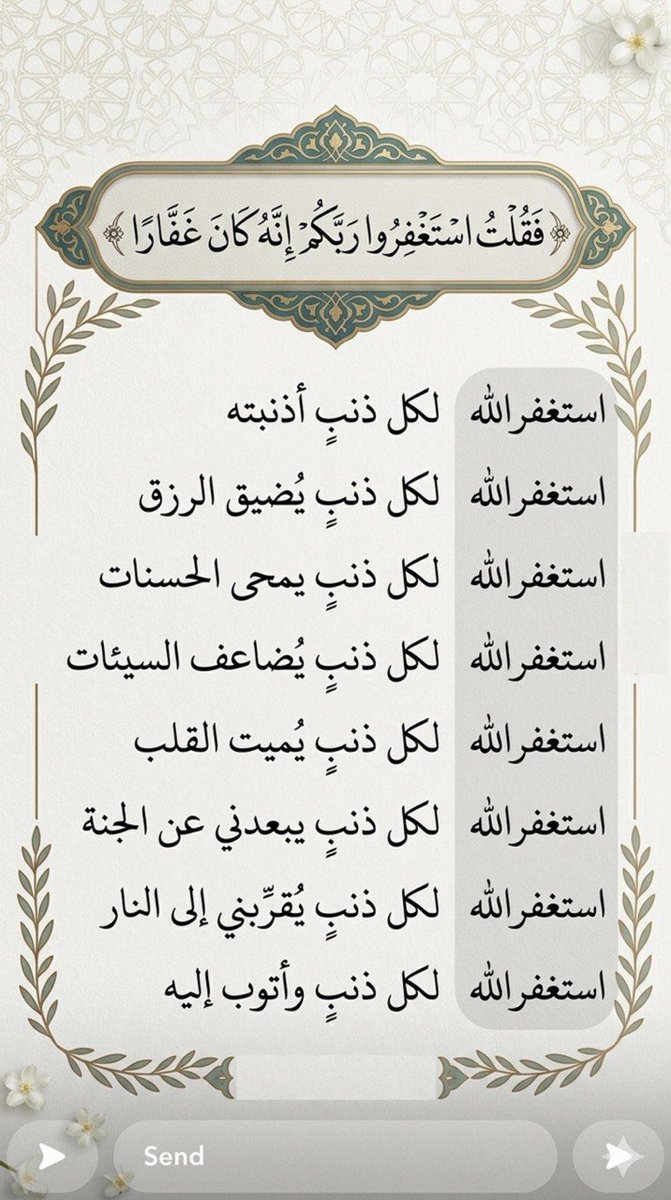 فَقُلْتُ اسْتَغْفِرُوا رَبَّكُمْ إِنَّهُ كَانَ غَفَّارًا
استغفر الله لكل ذنبٍ أذنبته
استغفر الله لكل ذنبٍ يُضيق الرزق
استغفر الله لكل ذنبٍ يمحى الحسنات
استغفر الله لكل ذنبٍ يُضاعف السيئات
استغفر الله لكل ذنبٍ يُميت القلب
استغفر الله لكل ذنبٍ يبعدني عن الجنة
استغفر الله لكل ذنبٍ يُقرِّبني إلى النار
استغفر الله لكل ذنبٍ وأتوب إليه
Send